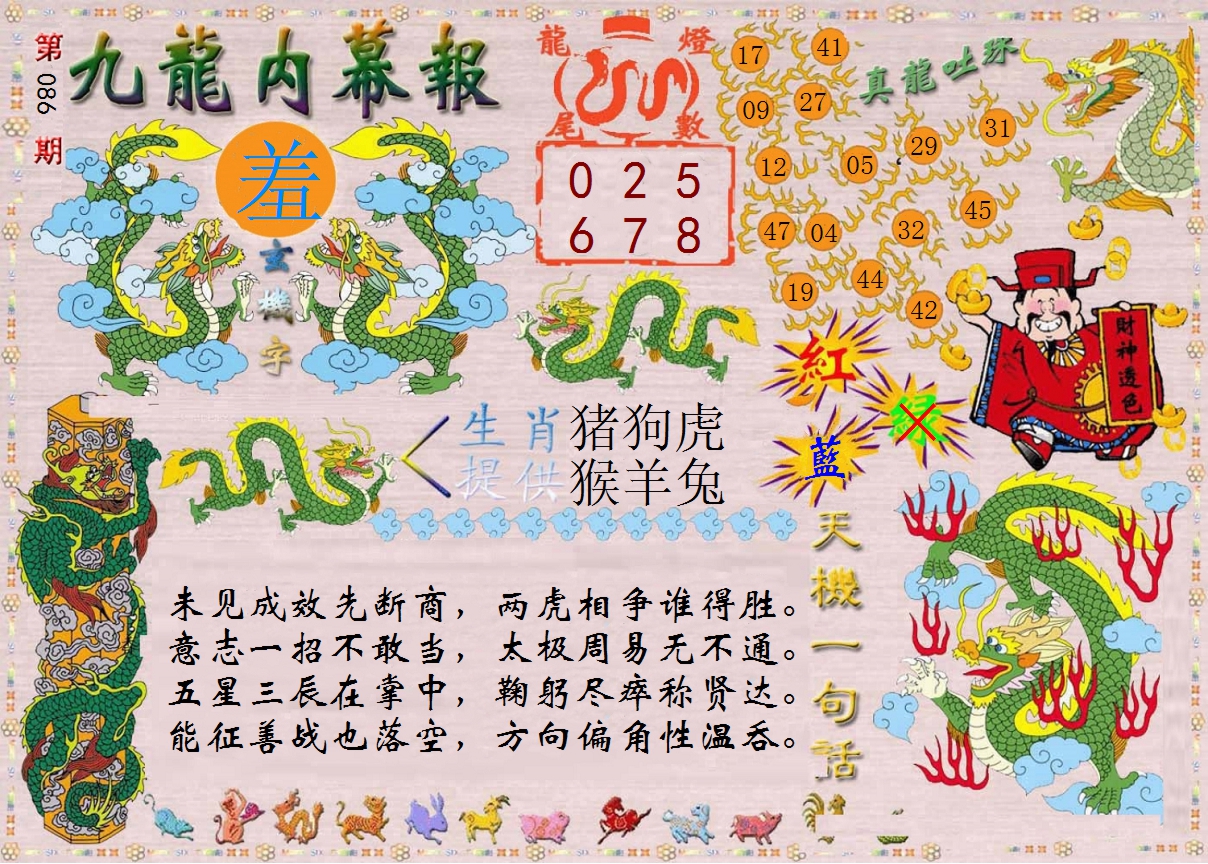 第086期
九龍内幕報
羞
玄機字
龍燈
尾數
0 2 5
6 7 8
真龍吐珠
17
41
09
27
31
29
12
05
45
47
04
32
44
19
42
財神透色
紅
绿
藍
生肖提供
猪狗虎
猴羊兔
未见成效先断商，两虎相争谁得胜。
意志一招不敢当，太极周易无不通。
五星三辰在掌中，鞠躬尽瘁称贤达。
能征善战也落空，方向偏角性温吞。
天機一句話